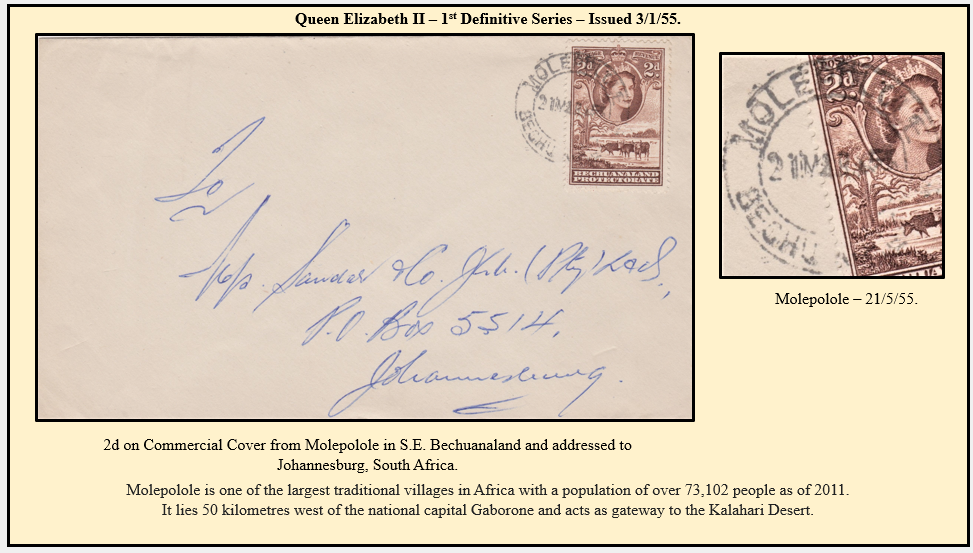 Queen Elizabeth II – 1st Definitive Series – Issued 3/1/55.
MOLEP
21 MA
BECHU
2d 2d
BECHUANALAND
PROTECTORATE
To
Sander & Co. Jhb. (Pty) Ltd.,
P.O. Box 5514,
Johannesburg.
MOLEP
2d
21 MA
BECHU
Molepolole – 21/5/55.
2d on Commercial Cover from Molepolole in S.E. Bechuanaland and addressed to
Johannesburg, South Africa.
Molepolole is one of the largest traditional villages in Africa with a population of over 73,102 people as of 2011.
It lies 50 kilometres west of the national capital Gaborone and acts as gateway to the Kalahari Desert.